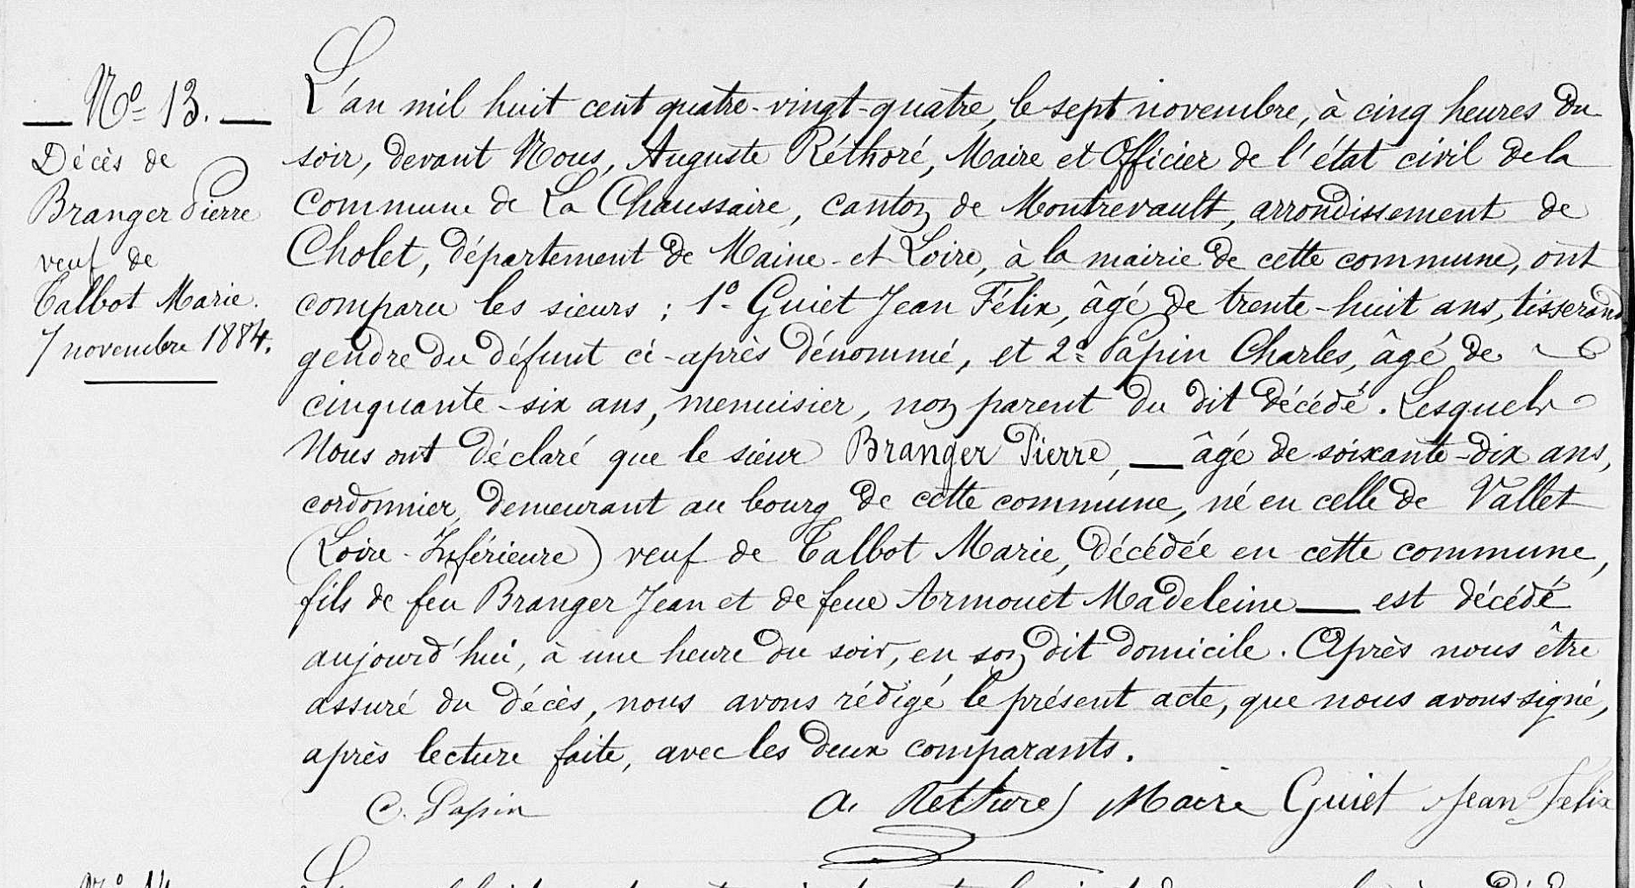 Nº 13.
Décès de
Branger Pierre
veuf de
Talbot Marie.
7 novembre 1884.
L'an mil huit cent quatre-vingt-quatre, le sept novembre, à cinq heures du
soir, devant Nous, Auguste Réthoré, Maire et Officier de l'état civil de la
commune de La Chaussaire, canton de Montrevault, arrondissement de
Cholet, département de Maine-et-Loire, à la mairie de cette commune, ont
comparu les sieurs : 1º Guiet Jean Félix, âgé de trente-huit ans, tisserand
gendre du défunt ci-après dénommé, et 2º Papin Charles, âgé de
cinquante-six ans, menuisier, non parent du dit décédé. Lesquels
Nous ont déclaré que le sieur Branger Pierre, âgé de soixante-dix ans,
cordonnier, demeurant au bourg de cette commune, né en celle de Vallet
(Loire-Inférieure) veuf de Talbot Marie, décédée en cette commune,
fils de feu Branger Jean et de feue Armouet Madeleine est décédé
aujourd'hui, à une heure du soir, en son dit domicile. Après nous être
assuré du décès, nous avons rédigé le présent acte, que nous avons signé,
après lecture faite, avec les deux comparants.
C. Papin A. Rethoré Maire Guiet Jean Felix